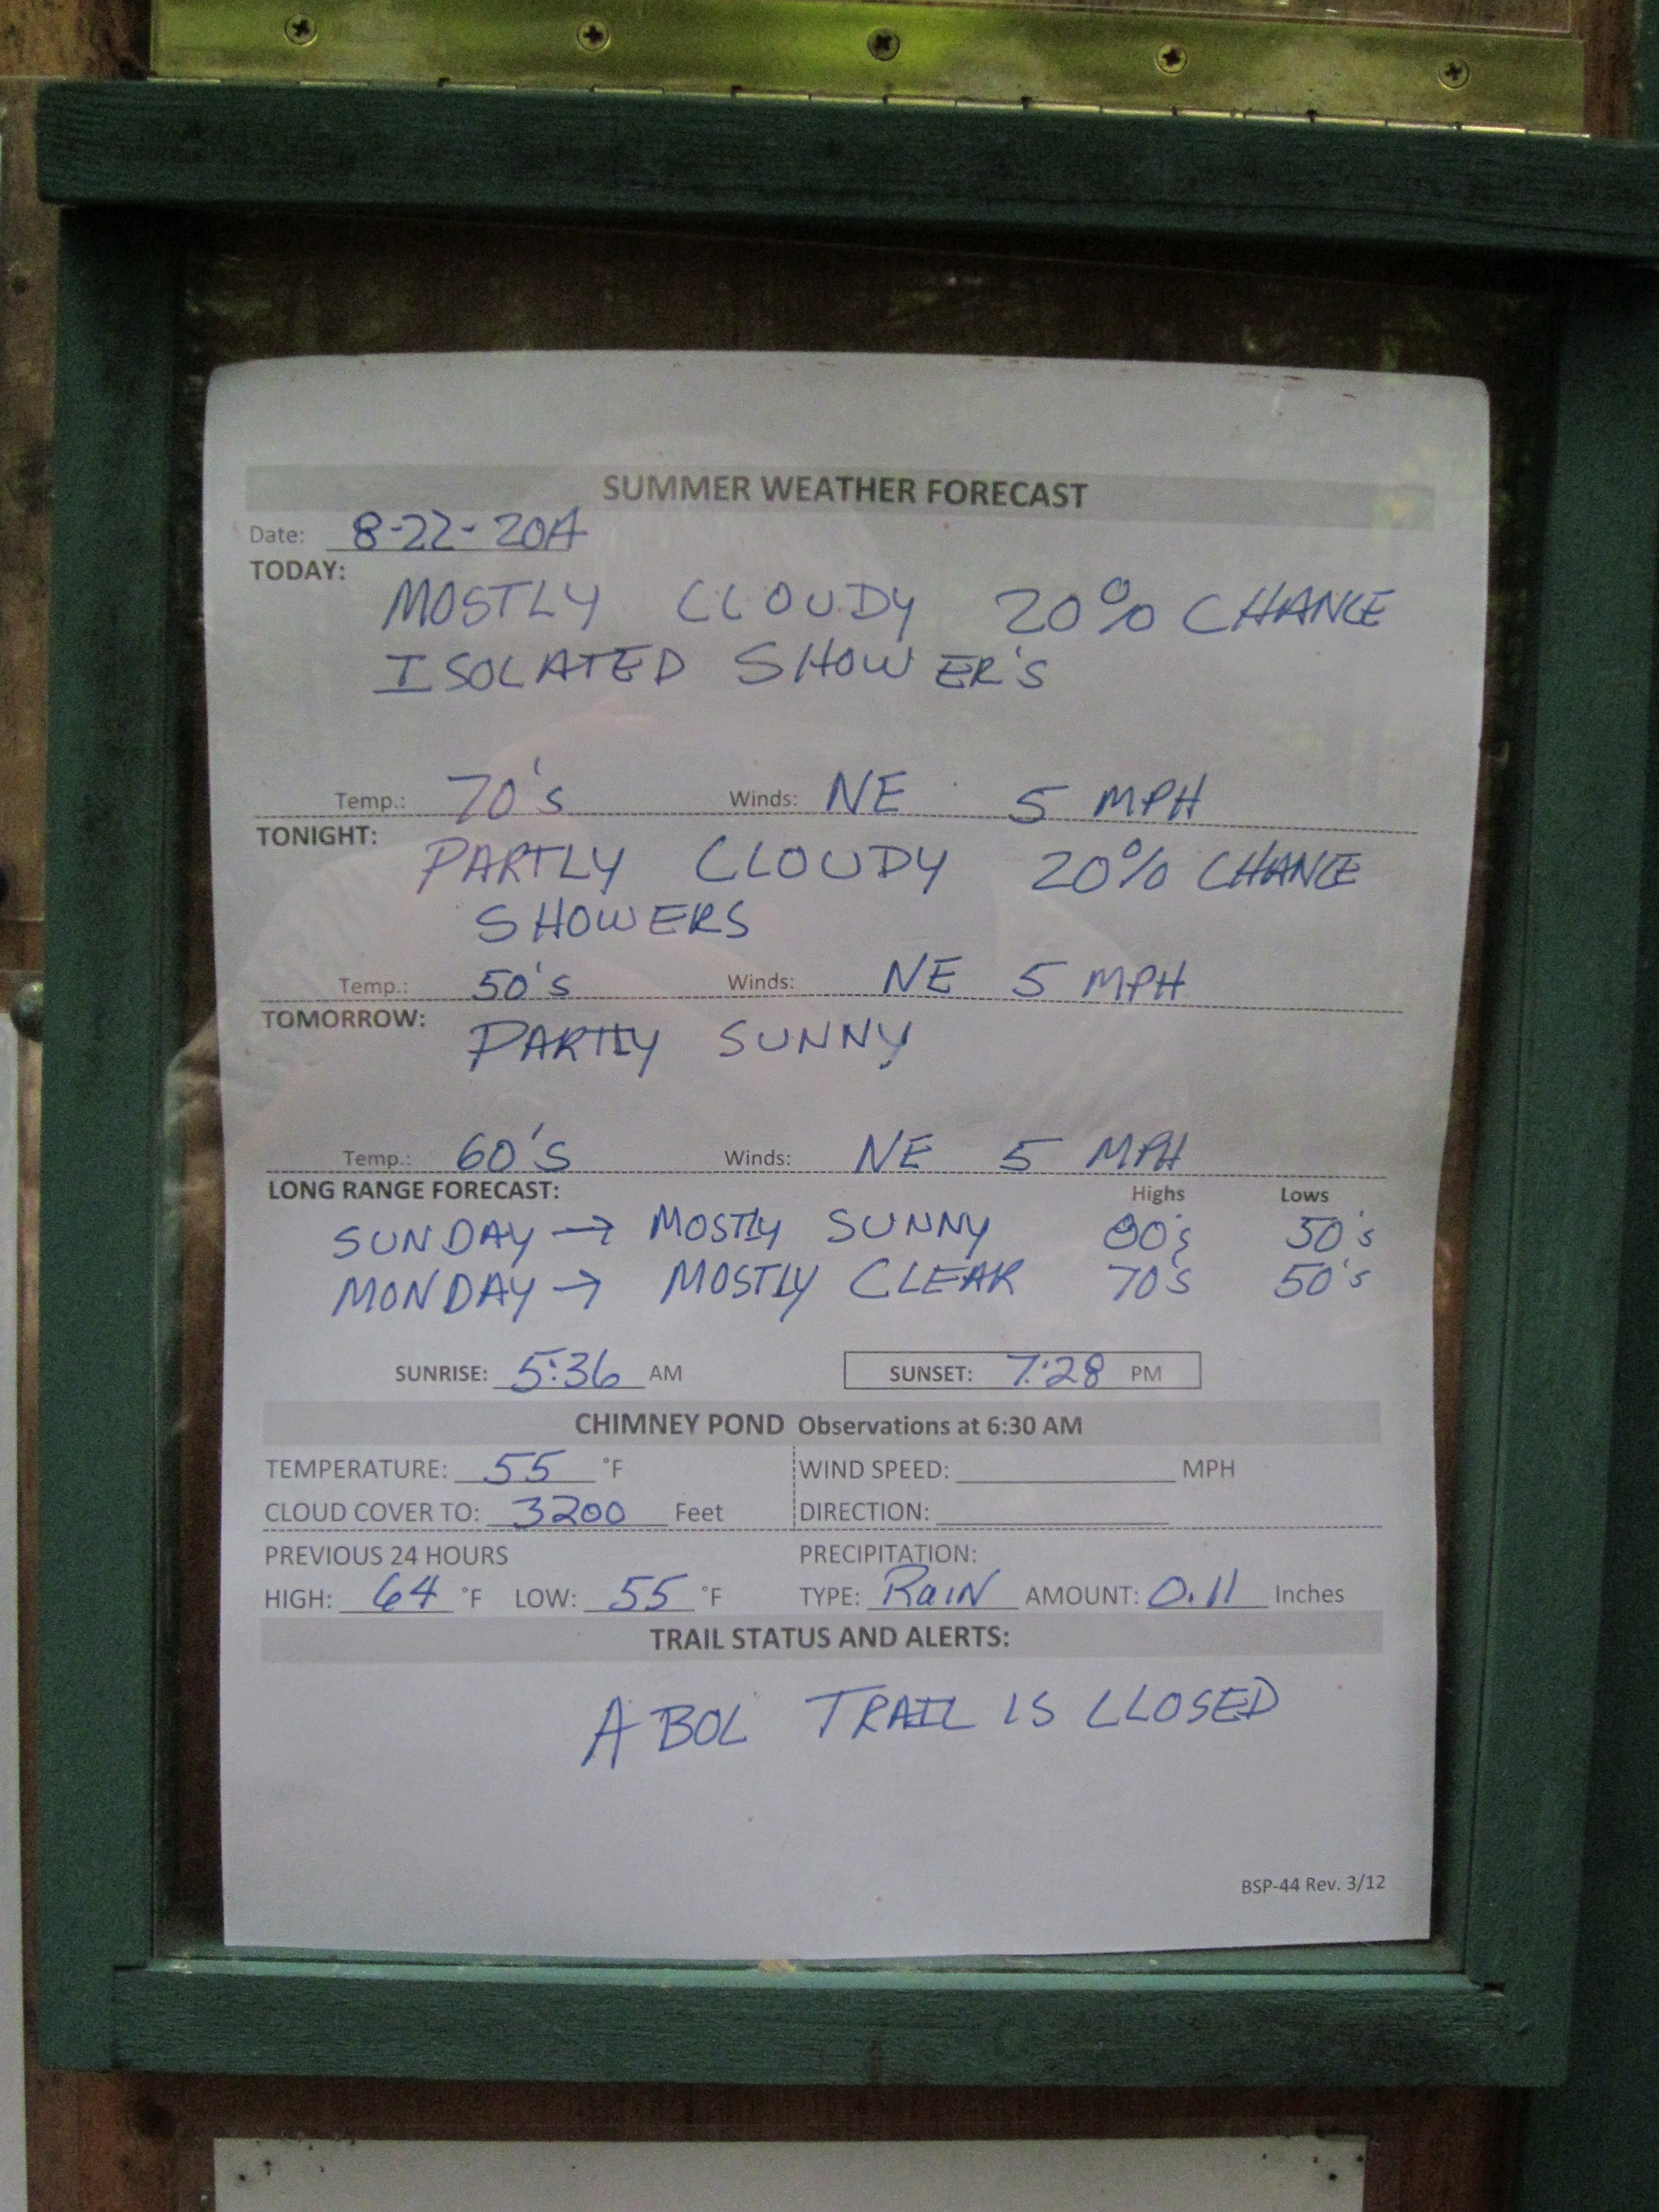 SUMMER WEATHER FORECAST
Date: 8-22-2014
TODAY:
MOSTLY CLOUDY 20% CHANCE
ISOLATED SHOWER'S
Temp.: 70's Winds: NE 5 MPH
TONIGHT:
PARTLY CLOUDY 20% CHANCE
SHOWERS
Temp.: 50's Winds: NE 5 MPH
TOMORROW:
PARTLY SUNNY
Temp.: 60's Winds: NE 5 MPH
LONG RANGE FORECAST: Highs Lows
SUNDAY → MOSTLY SUNNY 80's 50's
MONDAY → MOSTLY CLEAR 70's 50's
SUNRISE: 5:36 AM SUNSET: 7:28 PM
CHIMNEY POND Observations at 6:30 AM
TEMPERATURE: 55 °F WIND SPEED: MPH
CLOUD COVER TO: 3200 Feet DIRECTION:
PREVIOUS 24 HOURS PRECIPITATION:
HIGH: 64 °F LOW: 55 °F TYPE: RaiN AMOUNT: 0.11 Inches
TRAIL STATUS AND ALERTS:
ABOL TRAIL IS CLOSED
BSP-44 Rev. 3/12